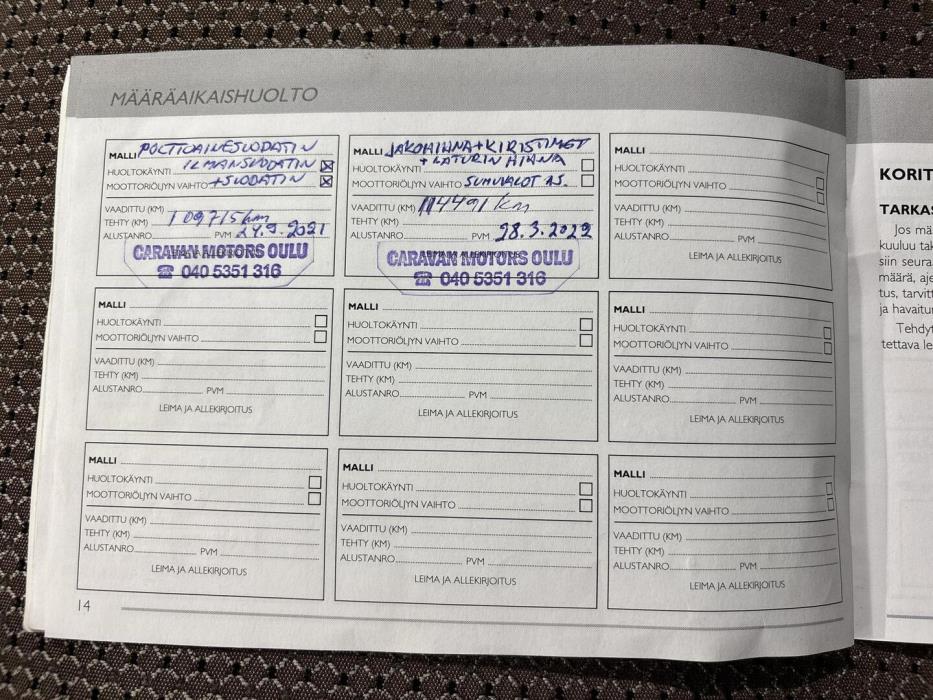 MÄÄRÄAIKAISHUOLTO
MALLI POLTTOAINESUODATIN
HUOLTOKÄYNTI ILMANSUODATIN
MOOTTORIÖLJYN VAIHTO +SUODATIN
VAADITTU (KM)
TEHTY (KM) 109715 km
ALUSTANRO PVM 24.9.2021
CARAVAN MOTORS OULU
☎ 040 5351 316
MALLI JAKOHIHNA+KIRISTIMET
HUOLTOKÄYNTI + LATURIN HIHNA
MOOTTORIÖLJYN VAIHTO SUMUVALOT AS.
VAADITTU (KM) 114491 km
TEHTY (KM)
ALUSTANRO PVM 28.3.2022
CARAVAN MOTORS OULU
☎ 040 5351 316
MALLI
HUOLTOKÄYNTI
MOOTTORIÖLJYN VAIHTO
VAADITTU (KM)
TEHTY (KM)
ALUSTANRO PVM
LEIMA JA ALLEKIRJOITUS
MALLI
HUOLTOKÄYNTI
MOOTTORIÖLJYN VAIHTO
VAADITTU (KM)
TEHTY (KM)
ALUSTANRO PVM
LEIMA JA ALLEKIRJOITUS
MALLI
HUOLTOKÄYNTI
MOOTTORIÖLJYN VAIHTO
VAADITTU (KM)
TEHTY (KM)
ALUSTANRO PVM
LEIMA JA ALLEKIRJOITUS
MALLI
HUOLTOKÄYNTI
MOOTTORIÖLJYN VAIHTO
VAADITTU (KM)
TEHTY (KM)
ALUSTANRO PVM
LEIMA JA ALLEKIRJOITUS
MALLI
HUOLTOKÄYNTI
MOOTTORIÖLJYN VAIHTO
VAADITTU (KM)
TEHTY (KM)
ALUSTANRO PVM
LEIMA JA ALLEKIRJOITUS
MALLI
HUOLTOKÄYNTI
MOOTTORIÖLJYN VAIHTO
VAADITTU (KM)
TEHTY (KM)
ALUSTANRO PVM
LEIMA JA ALLEKIRJOITUS
MALLI
HUOLTOKÄYNTI
MOOTTORIÖLJYN VAIHTO
VAADITTU (KM)
TEHTY (KM)
ALUSTANRO PVM
LEIMA JA ALLEKIRJOITUS
14
KORIT
TARKAS
Jos mä
kuuluu tak
siin seura
määrä, aje
tus, tarvitt
ja havaitu
Tehdyt
tettava le